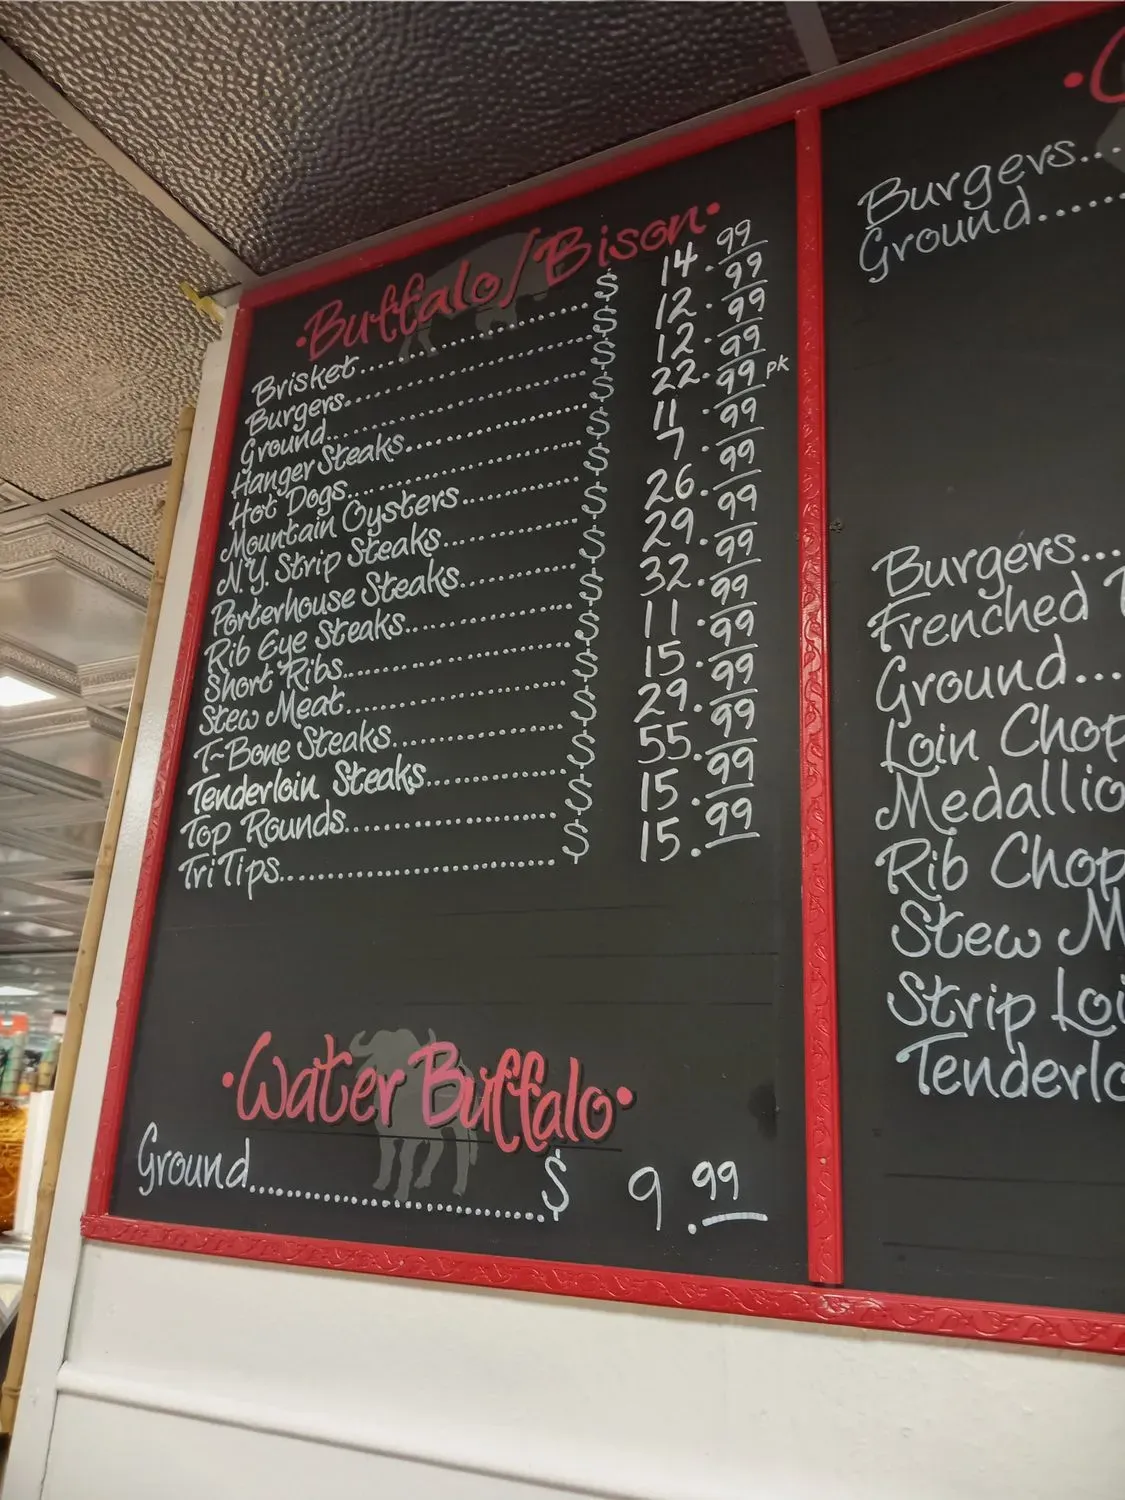 •Buffalo/Bison•
Brisket..........$ 14.99
Burgers..........$ 12.99
Ground..........$ 12.99
Hanger Steaks..........$ 22.99
Hot Dogs..........$ 11.99 pk
Mountain Oysters..........$ 7.99
N.Y. Strip Steaks..........$ 26.99
Porterhouse Steaks..........$ 29.99
Rib Eye Steaks..........$ 32.99
Short Ribs..........$ 11.99
Stew Meat..........$ 15.99
T-Bone Steaks..........$ 29.99
Tenderloin Steaks..........$ 55.99
Top Rounds..........$ 15.99
Tri Tips..........$ 15.99
•Water Buffalo•
Ground..........$ 9.99
Burgers...
Ground......
Burgers...
Frenched
Ground...
Loin Chop
Medallio
Rib Chop
Stew M
Strip Loi
Tenderlo